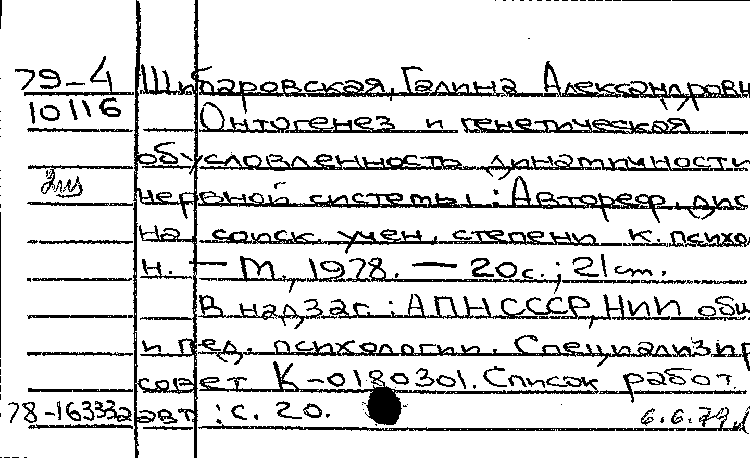 79-4 Шибаровская, Галина Александровн
10116 Онтогенез и генетическая
обусловленность динамичности
нервной системы: Автореф. дис
на соиск. учен. степени к. психо
н. — М., 1978. — 20 с.; 21 см.
В надзаг.: АПН СССР, НИИ общ
и пед. психологии. Специализир
совет К-0180301. Список работ
78-163332 авт.: с. 20. 6.6.79